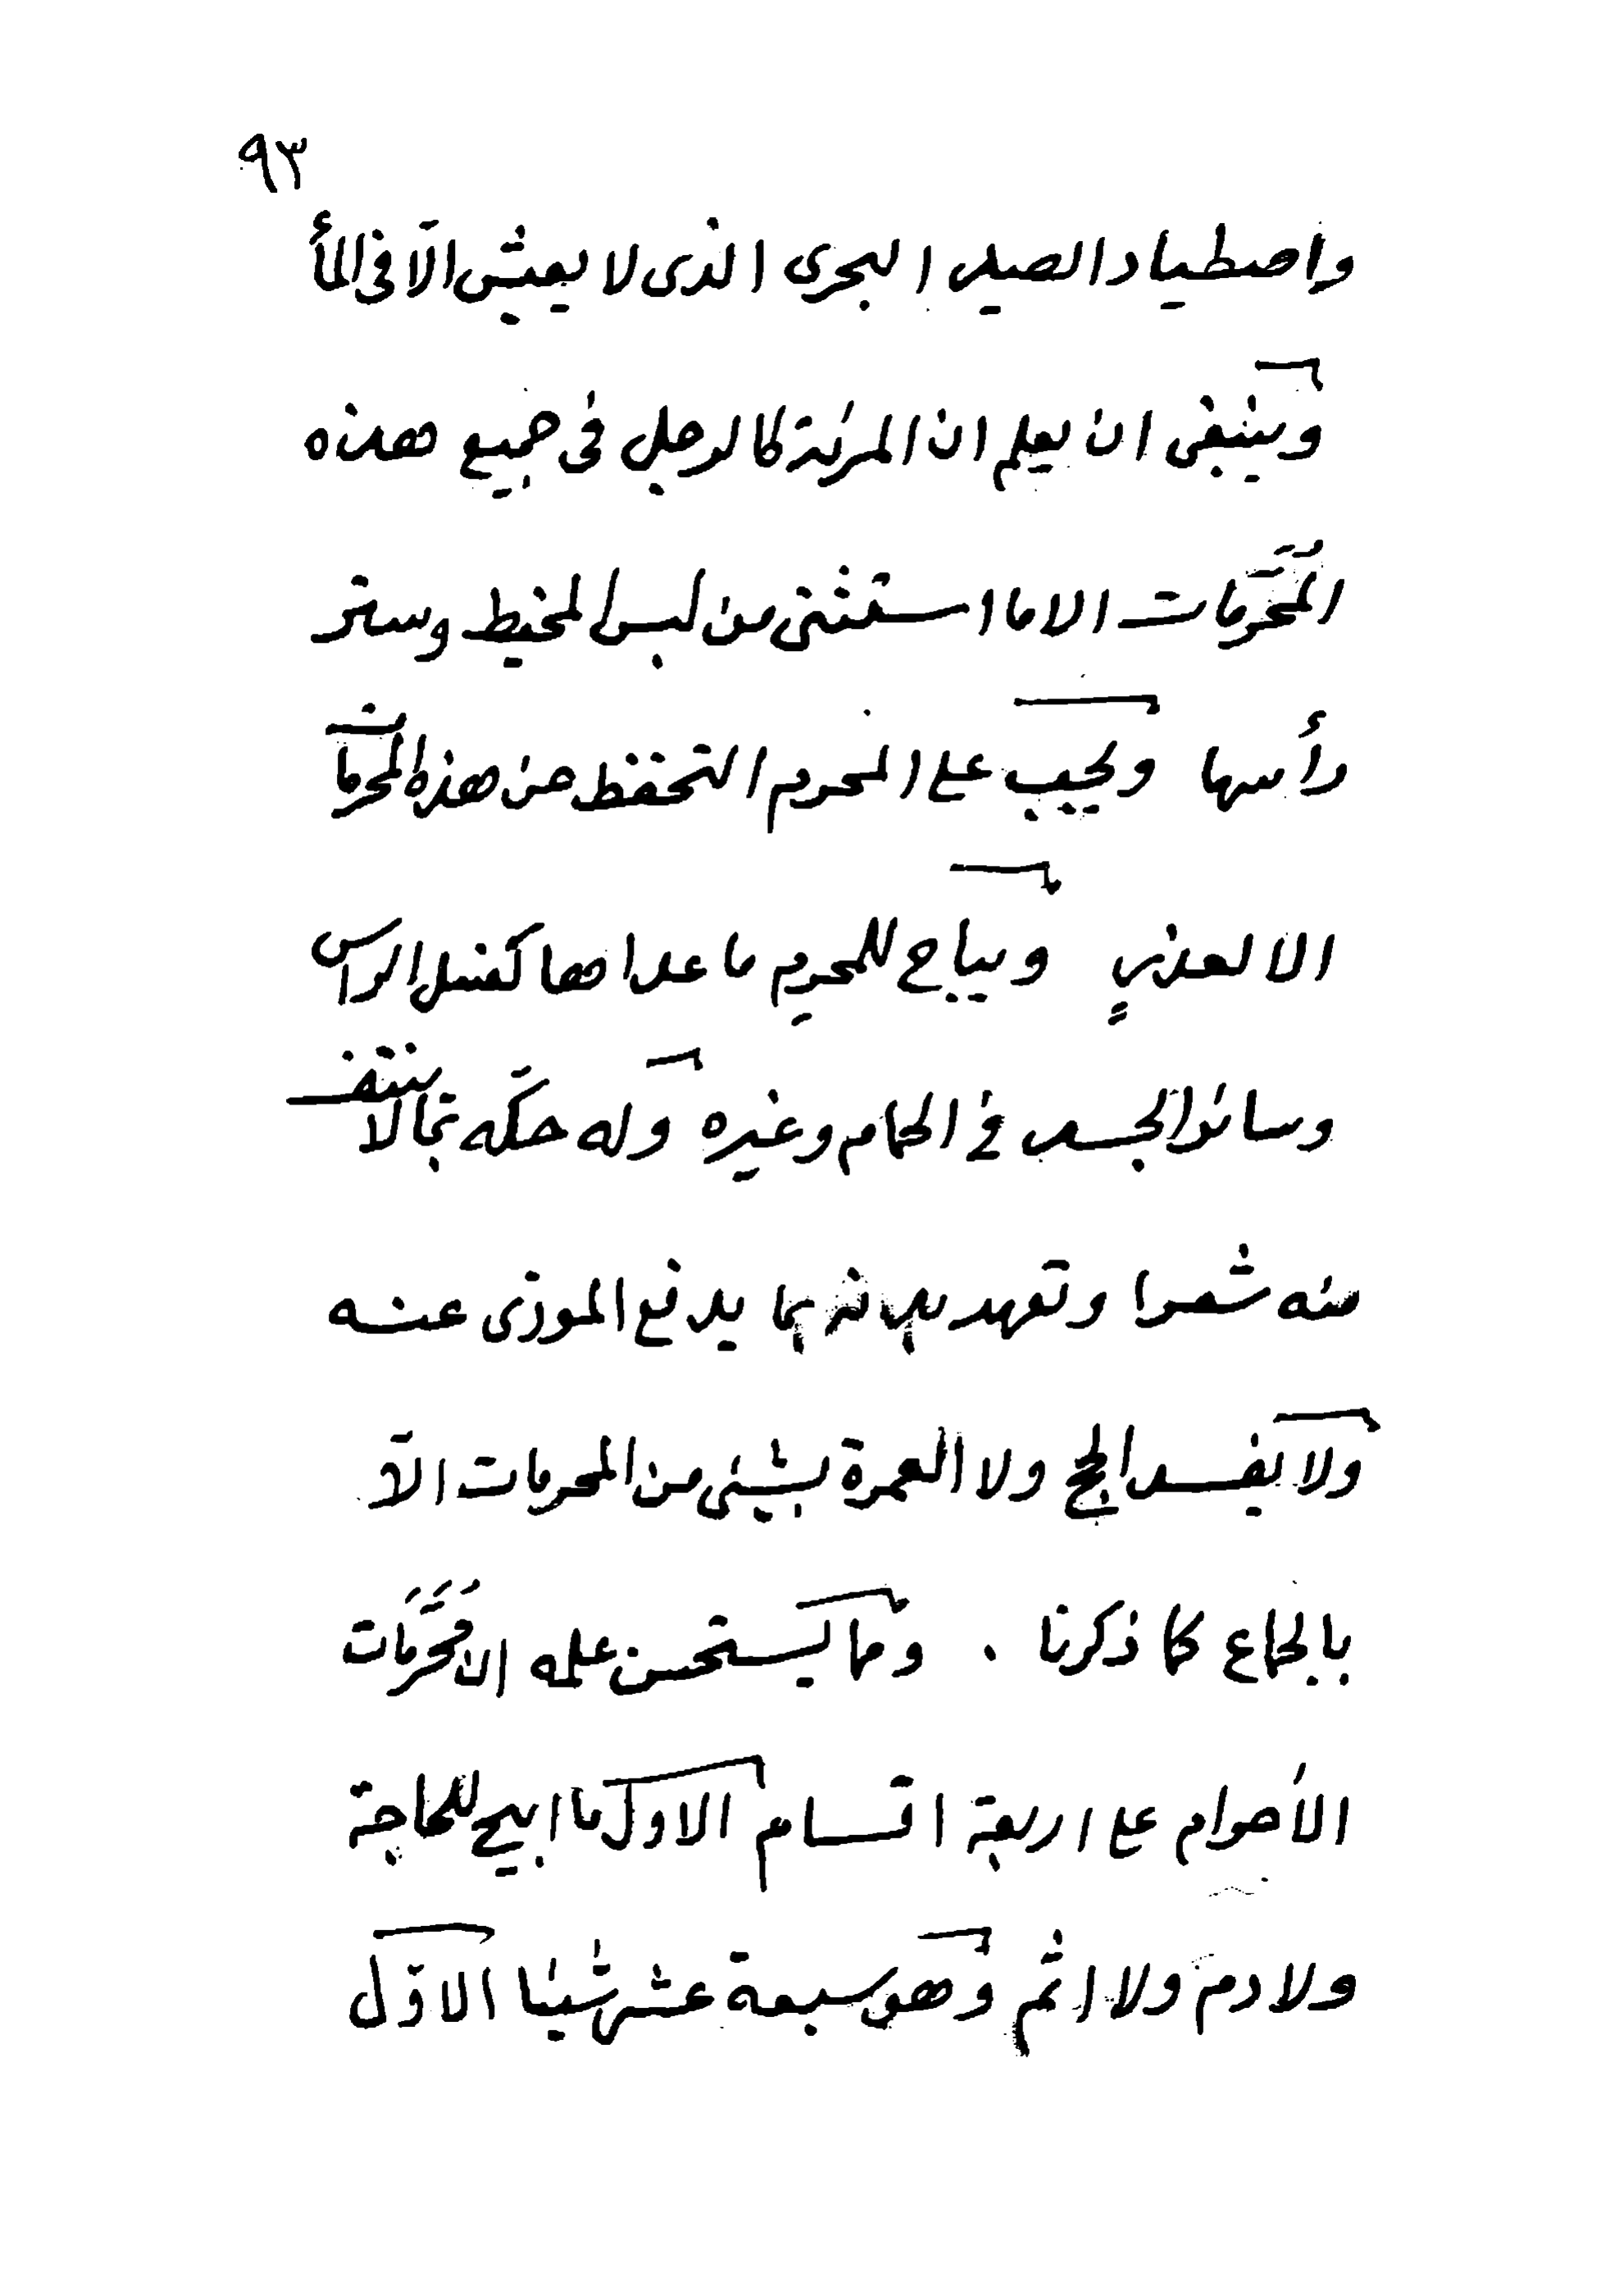 ٩٣
واصطياد الصيد البحرى الذى لا يعيش الّا فى المأ
وينبغى ان يعلم ان المرئة كالرجل فى جميع هذه
المُحَرَّمات الا ما استثنى من لبس المخيط وستر
رأسها ويجب على المحرم التحفظ من هذه المحرمات
الا لعذرٍ ويباح للمحرِم ما عداها كغسل الراس
وسائر الجسد فى الحمام وغيره وله حكّه بما لا ينتف
منه شعرا وتعهد بدنه بما يدفع الموذى عنه
ولا يفسد الحج ولا العمرة بشيئ من المحرمات الّا
بالجماع كما ذكرنا . ومما يستحسن علمه ان مُحَرَّمَات
الأحرام على اربعة اقسام الاول ما ابيح للحاجة
ولا دم ولا اثم وهو سبعة عشر شيئا الاوّل